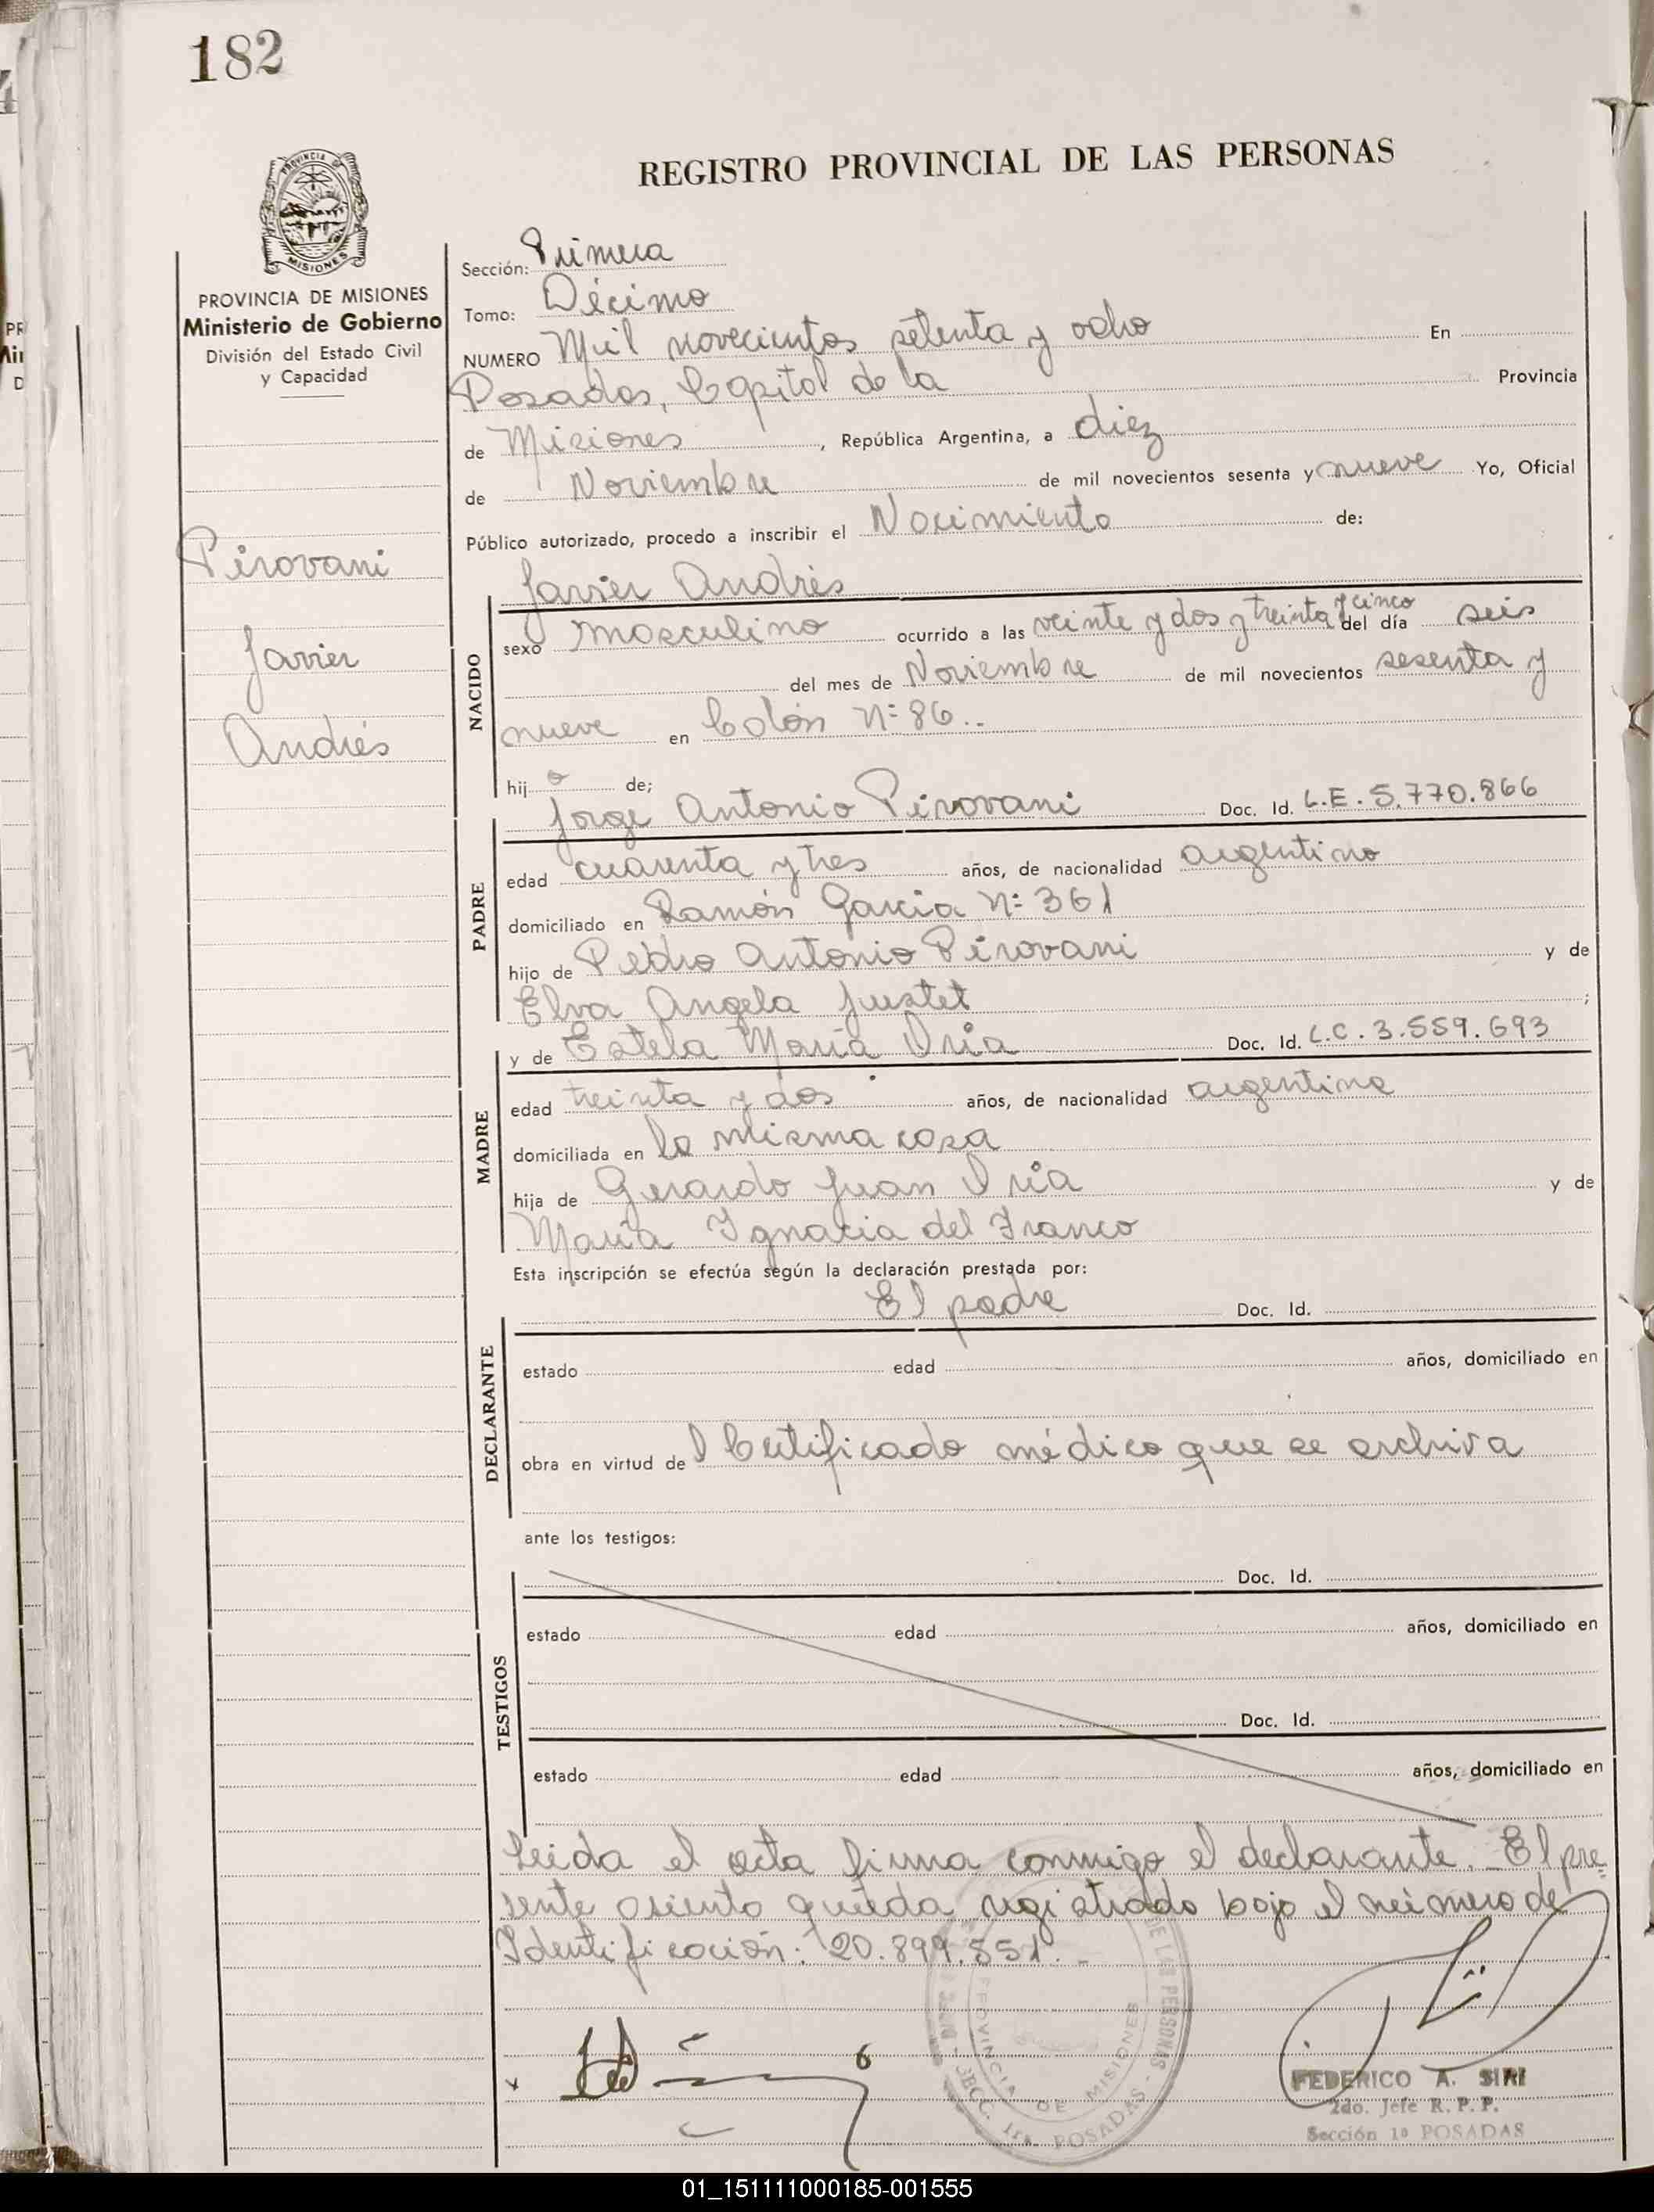 182
REGISTRO PROVINCIAL DE LAS PERSONAS
PROVINCIA DE
MISIONES
PROVINCIA DE MISIONES
Ministerio de Gobierno
División del Estado Civil
y Capacidad
Pirovani
Javier
Andrés
Sección: Primera
Tomo: Décimo
NUMERO Mil novecientos setenta y ocho En
Posadas, Capital de la Provincia
de Misiones, República Argentina, a diez
de Noviembre de mil novecientos sesenta y nueve Yo, Oficial
Público autorizado, procedo a inscribir el Nacimiento de:
Javier Andrés
NACIDO
sexo masculino ocurrido a las veinte y dos y treinta y cinco del día seis
del mes de Noviembre de mil novecientos sesenta y
nueve en Colón Nº 86..
hijo de;
Jorge Antonio Pirovani Doc. Id. L.E. 5.770.866
PADRE
edad cuarenta y tres años, de nacionalidad argentino
domiciliado en Ramón Garcia Nº 361
hijo de Pedro Antonio Pirovani y de
Elva Angela Justet ;
y de Estela María Oria Doc. Id. L.C. 3.559.693
MADRE
edad treinta y dos años, de nacionalidad argentina
domiciliada en la misma casa
hija de Gerardo Juan Oria y de
María Ignacia del Franco
Esta inscripción se efectúa según la declaración prestada por:
El padre Doc. Id.
DECLARANTE
estado edad años, domiciliado en
obra en virtud de l Certificado médico que se archiva
ante los testigos:
Doc. Id.
TESTIGOS
estado edad años, domiciliado en
Doc. Id.
estado edad años, domiciliado en
Leida el acta firma conmigo el declarante. El pre-
sente asiento queda registrado bajo el número de
Identificación: 20.899.551.-
DE LAS PERSONAS - SECC. 1ra. POSADAS
PROVINCIA DE MISIONES
FEDERICO A. SIRI
2do. Jefe R. P. P.
Sección 1ª POSADAS
01_151111000185-001555